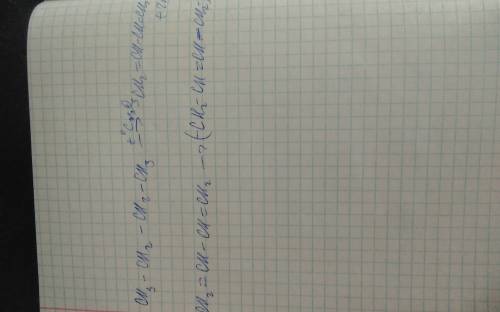 CH3 - CH2 - CH2 - CH3 → CH2 = CH - CH = CH2
CH2 = CH - CH = CH2 → (CH2 - CH = CH - CH2